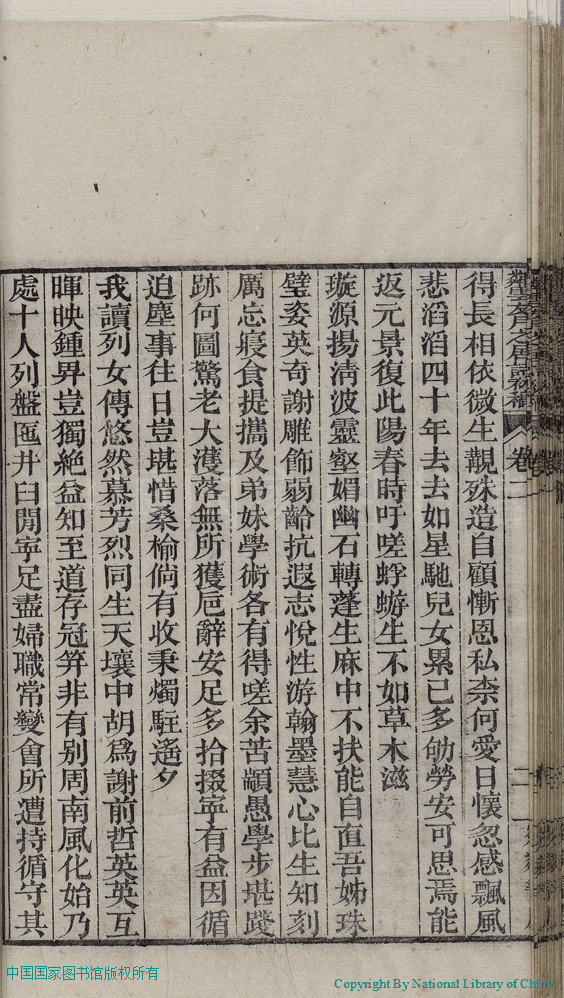 卷二
得長相依微生覯殊造自顧慚恩私柰何愛日懷忽感飄風
悲滔滔四十年去去如星馳兒女累已多劬勞安可思焉能
返元景復此陽春時吁嗟蜉蝣生不如草木滋
璇源揚清波靈壑媚幽石轉蓬生麻中不扶能自直吾姊珠
璧姿英奇謝雕飾弱齡抗遐志悅性游翰墨慧心比生知刻
厲忘寢食提攜及弟妹學術各有得嗟余苦顓愚學步堪踐
跡何圖驚老大濩落無所獲巵辭安足多拾掇寕有益因循
迫塵事往日豈堪惜桑榆倘有收秉燭駐遙夕
我讀列女傳悠然慕芳烈同生天壤中胡爲謝前哲英英互
暉映鍾畀豈獨絕益知至道存冠笄非有别周南風化始乃
處十人列盤匜井臼閒寕足盡婦職常變會所遭持循守其
二
中国国家图书馆版权所有
Copyright By National Library of China